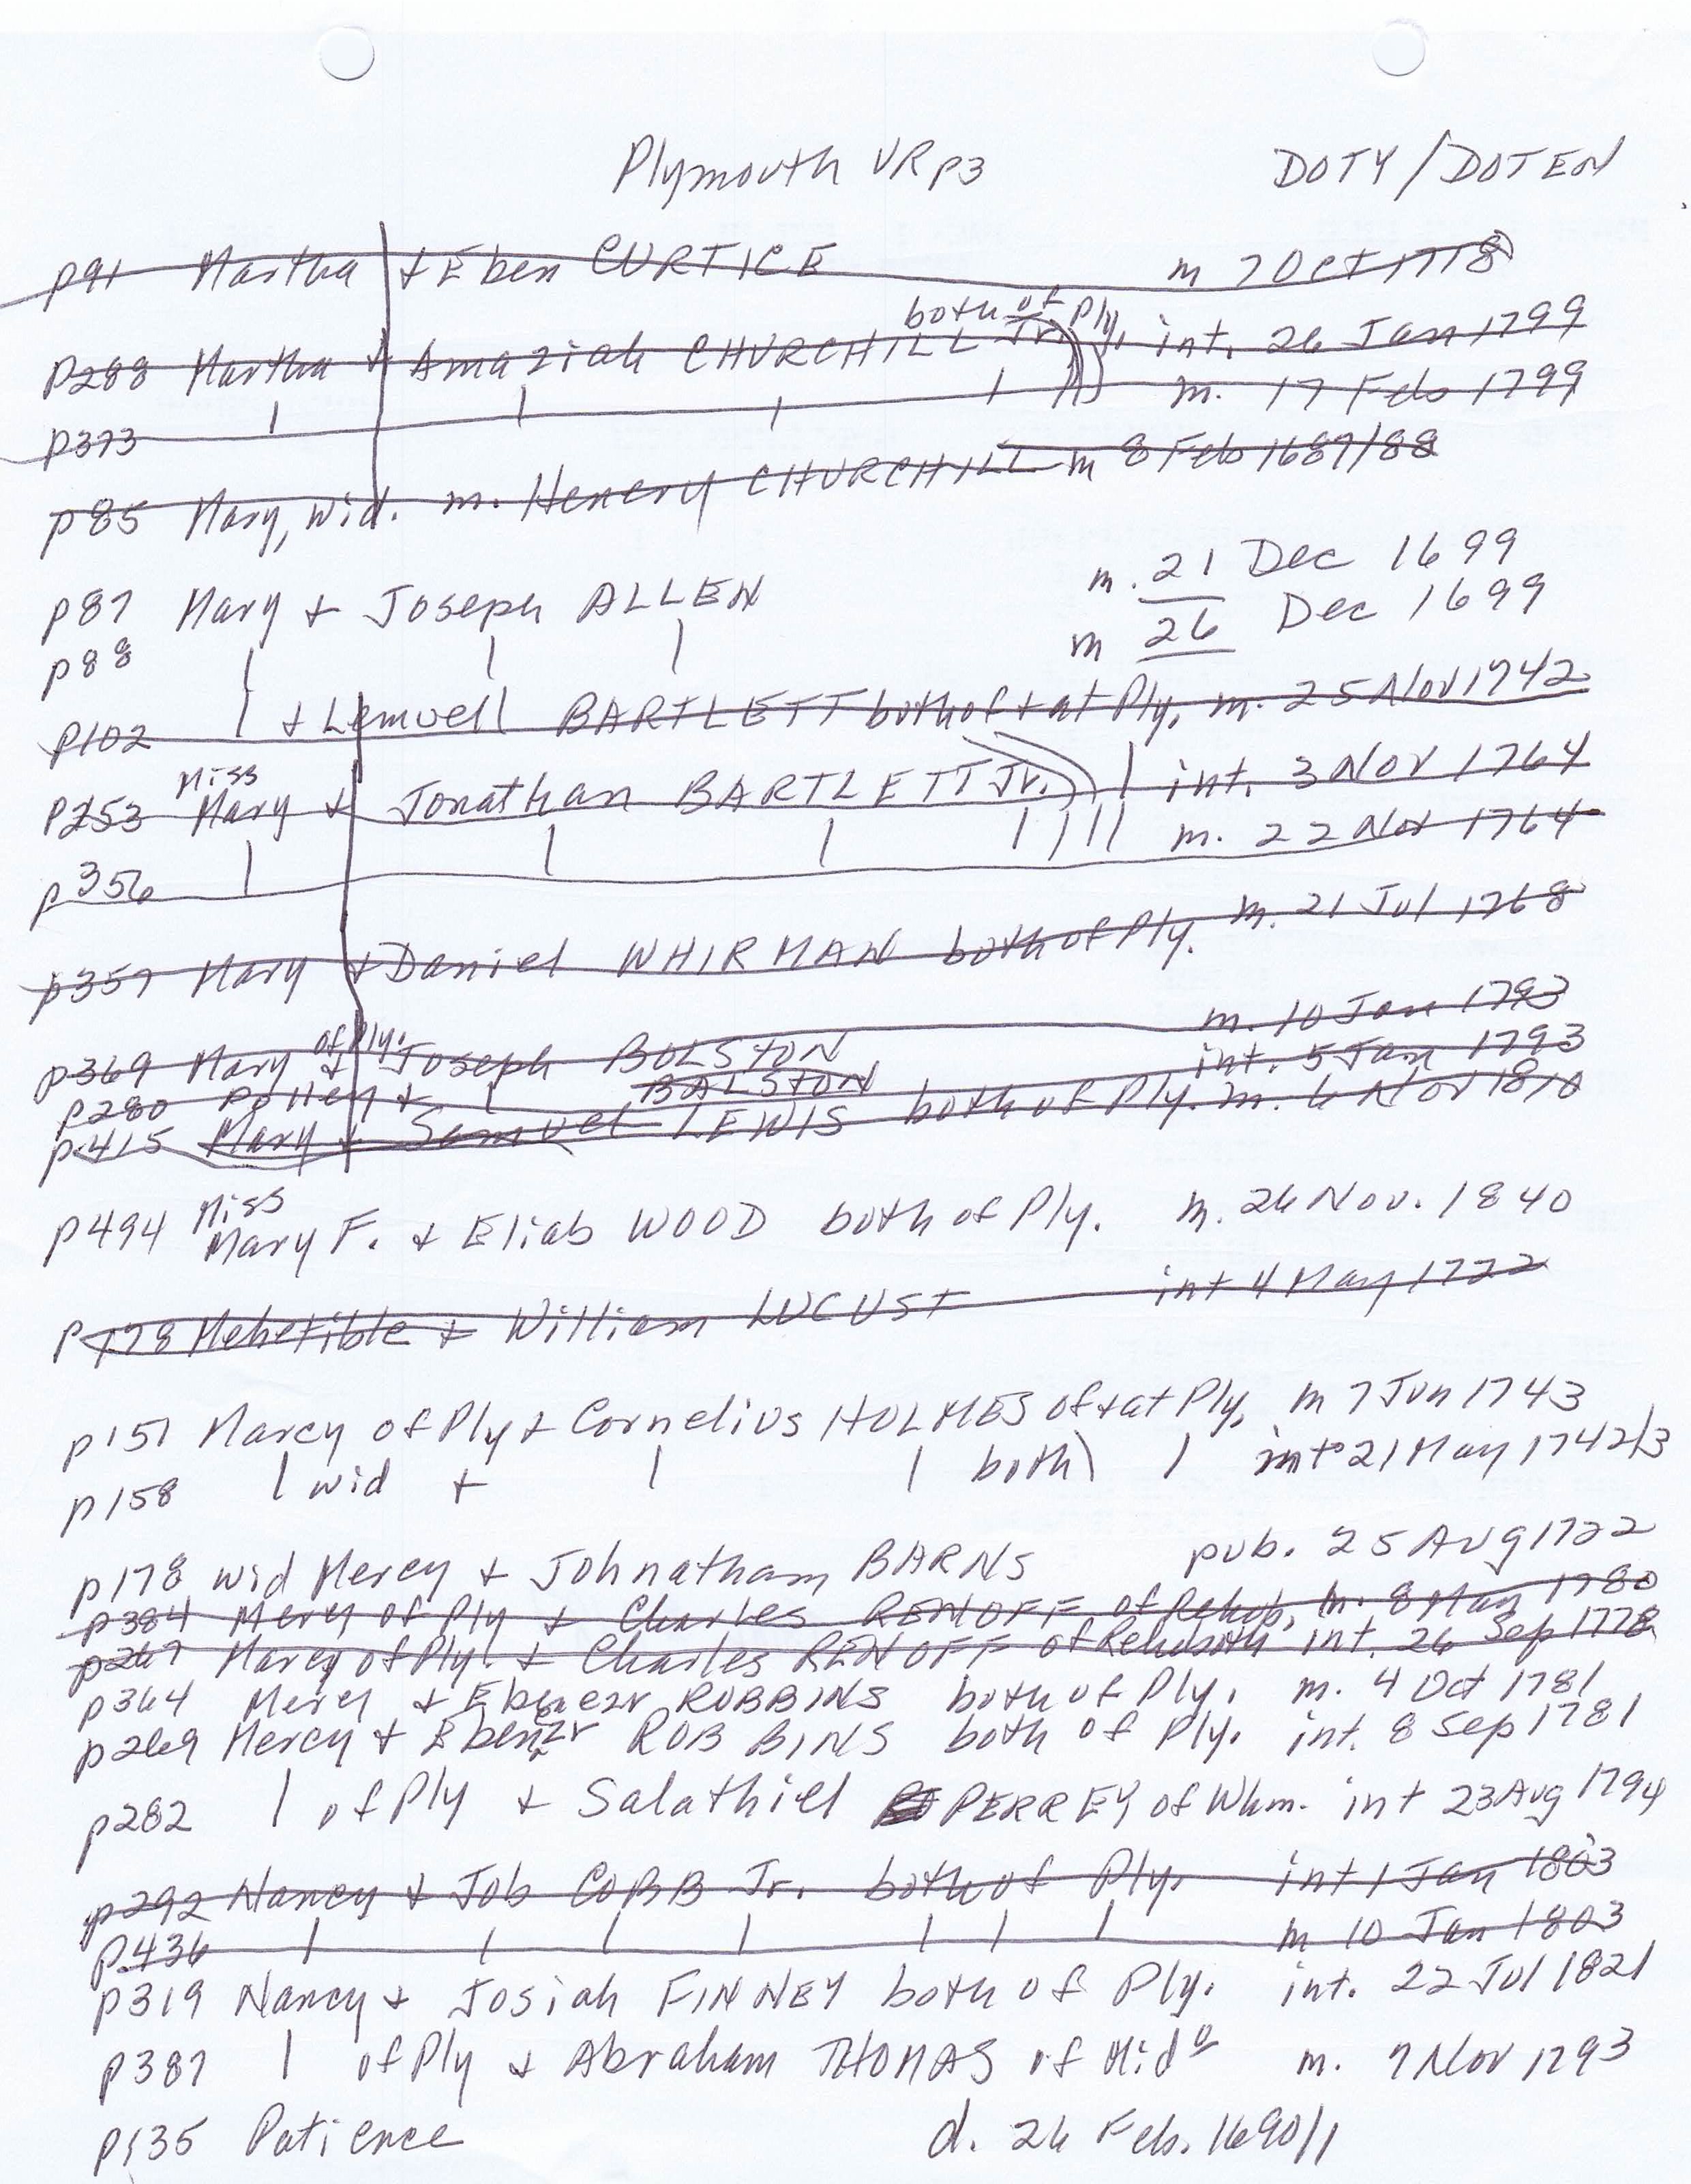 Plymouth VR p3 DOTY/DOTEN
p91 Martha + Eben CURTICE m 7 Oct 1718
both of Ply,
p288 Martha + Amaziah CHURCHILL Jr. int. 26 Jan 1799
p373 | | | | m. 17 Feb 1799
p85 Mary, wid. m. Henery CHURCHILL m 8 Feb 1687/88
p87 Mary + Joseph ALLEN m. 21 Dec 1699
p88 | | | m 26 Dec 1699
p102 | + Lemuell BARTLETT both of + at Ply, m. 25 Nov 1742
Miss
p253 Mary + Jonathan BARTLETT Jr. | int. 3 Nov 1764
p356 | | | | | | | m. 22 Nov 1764
p357 Mary + Daniel WHIRMAN both of Ply. m. 21 Jul 1768
p369 Mary of Ply. + Joseph BOLSTON m. 10 Jan 1793
p280 Polley + | BALSTON int. 5 Jan 1793
p.415 Mary + Samuel LEWIS both of Ply. m. 6 Nov 1810
Miss
p494 Mary F. + Eliab WOOD both of Ply. m. 26 Nov. 1840
p178 Mehetible + William LUCUST int 4 May 1722
p151 Marcy of Ply + Cornelius HOLMES of + at Ply, m 7 Jun 1743
p158 | wid + | | both | int 21 May 1742/3
p178 wid Mercy + Johnathan BARNS pub. 25 Aug 1722
p384 Mercy of Ply + Charles RENOFF of Rehob, m. 8 Mar 1780
p267 Marcy of Ply. + Charles RENOFF of Rehoboth int. 26 Sep 1778
p364 Mercy + Ebenezr ROBBINS both of Ply, m. 4 Oct 1781
p269 Mercy + Ebenzr ROBBINS both of Ply. int. 8 Sep 1781
p282 | of Ply + Salathiel PERREY of Whm. int 23 Aug 1794
p292 Nancy + Job COBB Jr. both of Ply. int 1 Jan 1803
p.436 | | | | | | | m 10 Jan 1803
p319 Nancy + Josiah FINNEY both of Ply. int. 22 Jul 1821
p387 | of Ply + Abraham THOMAS of Mido m. 7 Nov 1793
p135 Patience d. 26 Feb. 1690/1